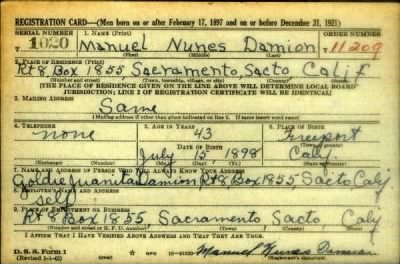 REGISTRATION CARD—(Men born on or after February 17, 1897 and on or before December 31, 1921)
SERIAL NUMBER 1. NAME (Print) ORDER NUMBER
T 1020 Manuel Nunes Damion T 11209
(First) (Middle) (Last)
2. PLACE OF RESIDENCE (Print)
Rt 8 Box 1855 Sacramento, Sacto Calif
(Number and street) (Town, township, village, or city) (County) (State)
[THE PLACE OF RESIDENCE GIVEN ON THE LINE ABOVE WILL DETERMINE LOCAL BOARD
JURISDICTION; LINE 2 OF REGISTRATION CERTIFICATE WILL BE IDENTICAL]
3. MAILING ADDRESS
Same
(Mailing address if other than place indicated on line 2. If same insert word same)
4. TELEPHONE 5. AGE IN YEARS 6. PLACE OF BIRTH
none 43 Freeport
DATE OF BIRTH (Town or county)
July 15, 1898 Calif
(Exchange) (Number) (Mo.) (Day) (Yr.) (State or country)
7. NAME AND ADDRESS OF PERSON WHO WILL ALWAYS KNOW YOUR ADDRESS
Goldie Juanita Damion Rt 8 Box 1855 Sacto, Calif
8. EMPLOYER'S NAME AND ADDRESS
self
9. PLACE OF EMPLOYMENT OR BUSINESS
Rt 8 Box 1855 Sacramento Sacto, Calif
(Number and street or R. F. D. number) (Town) (County) (State)
I AFFIRM THAT I HAVE VERIFIED ABOVE ANSWERS AND THAT THEY ARE TRUE.
D. S. S. Form 1
(Revised 1-1-42) GPO 16—21630 Manuel Nunes Damion
(Registrant's signature)